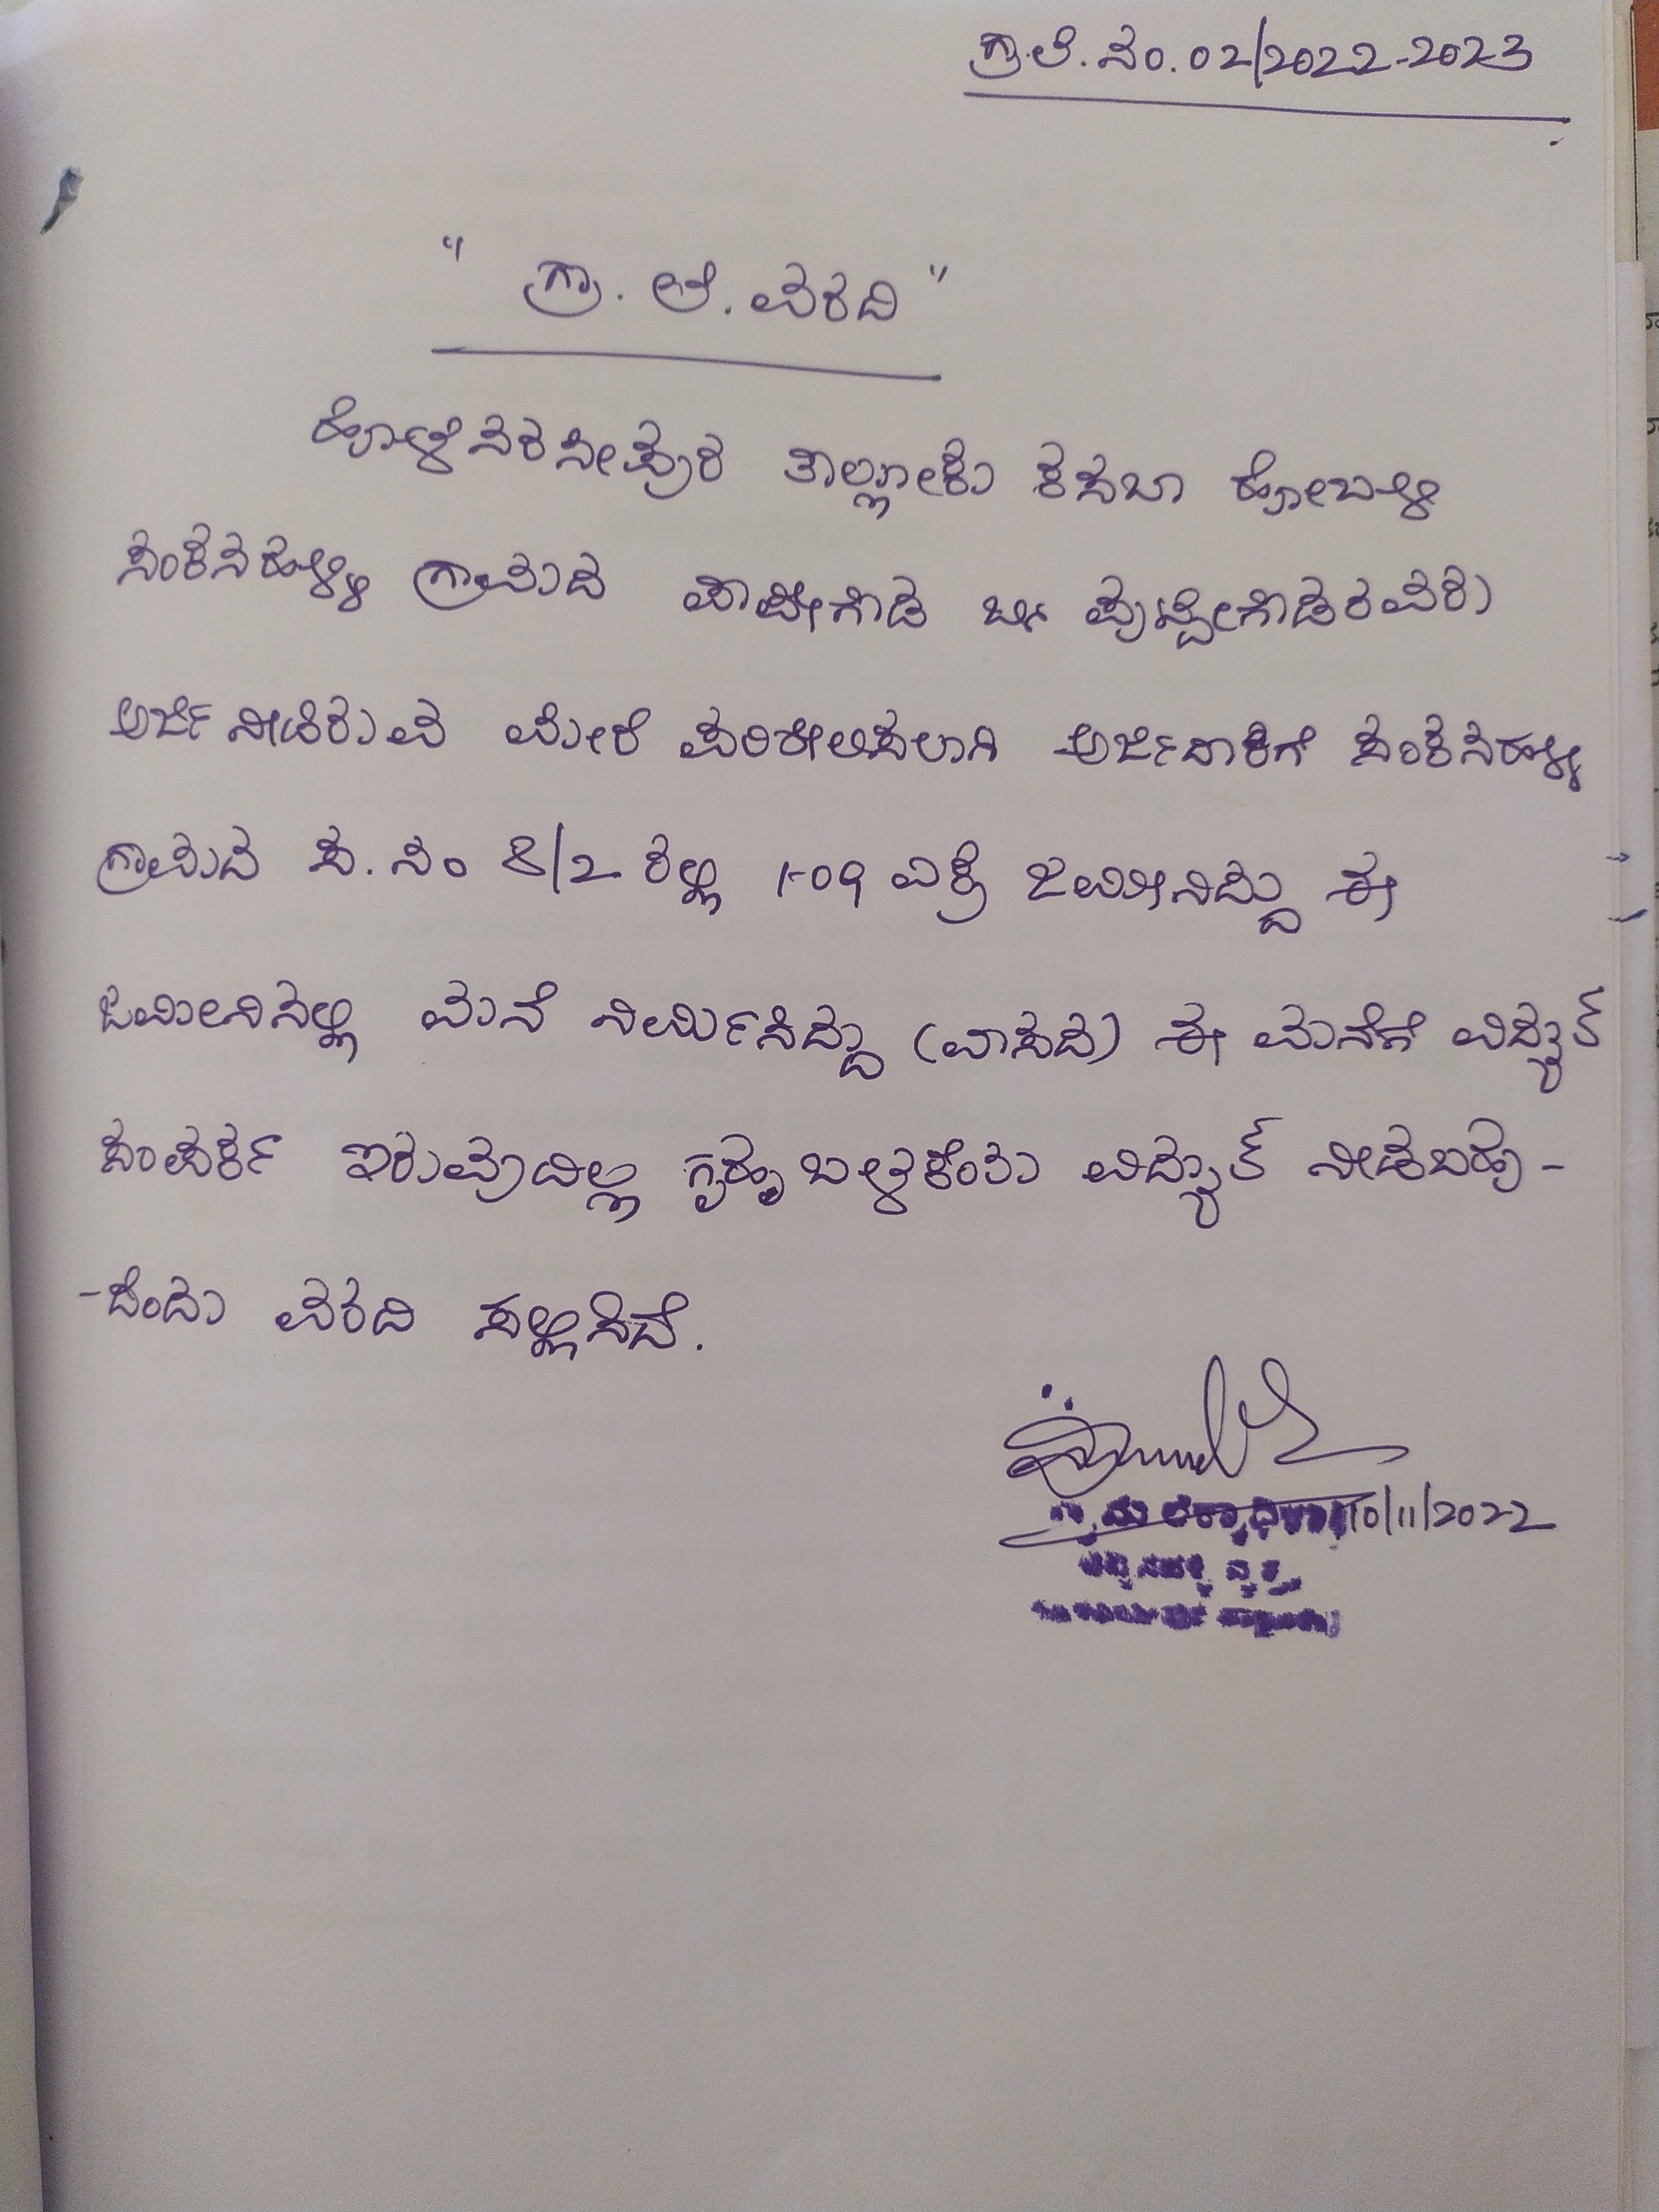 ಗ್ರಾ.ಲೆ.ನಂ.02/2022-2023
" ಗ್ರಾ. ಲೆ. ವರದಿ "
ಹೊಳೆನರಸೀಪುರ ತಾಲ್ಲೂಕು ಕಸಬಾ ಹೋಬಳಿ
ಸಂಕನಹಳ್ಳಿ ಗ್ರಾಮದ ಪಾಪೇಗೌಡ ಬಿನ್ ಪುಟ್ಟೇಗೌಡರವರು
ಅರ್ಜಿ ನೀಡಿರುವ ಮೇರೆ ಪರಿಶೀಲಿಸಲಾಗಿ ಅರ್ಜಿದಾರಿಗೆ ಸಂಕನಹಳ್ಳಿ
ಗ್ರಾಮದ ಸ.ನಂ 8/2 ರಲ್ಲಿ 1-09 ಎಕ್ರೆ ಜಮೀನಿದ್ದು ಈ
ಜಮೀನಿನಲ್ಲಿ ಮನೆ ನಿರ್ಮಿಸಿದ್ದು (ವಾಸದ) ಈ ಮನೆಗೆ ವಿದ್ಯುತ್
ಸಂಪರ್ಕ ಇರುವುದಿಲ್ಲ ಗೃಹ ಬಳಕೆಂತು ವಿದ್ಯುತ್ ನೀಡಬಹು-
-ದೆಂದು ವರದಿ ಸಲ್ಲಿಸಿದೆ.
10/11/2022